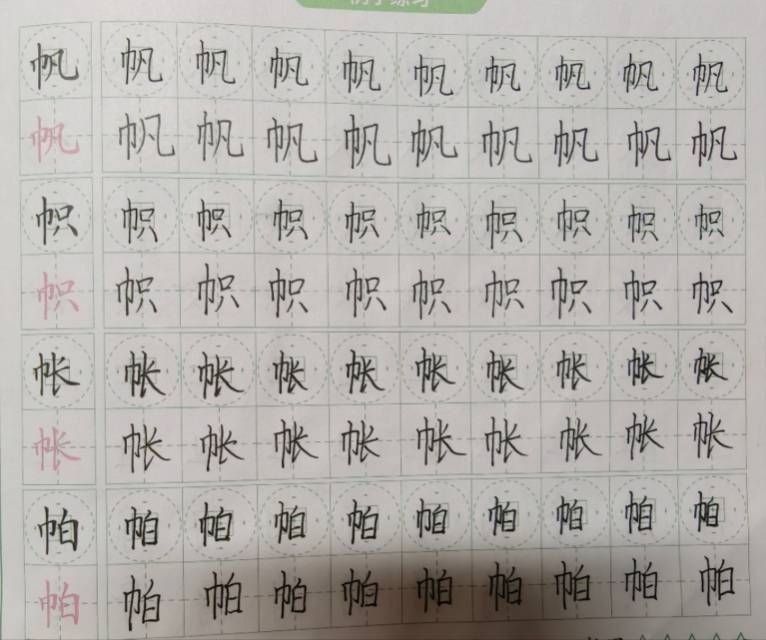 帆 帆 帆 帆 帆 帆 帆 帆 帆 帆
帆 帆 帆 帆 帆 帆 帆 帆 帆 帆
帜 帜 帜 帜 帜 帜 帜 帜 帜 帜
帜 帜 帜 帜 帜 帜 帜 帜 帜 帜
帐 帐 帐 帐 帐 帐 帐 帐 帐 帐
帐 帐 帐 帐 帐 帐 帐 帐 帐 帐
帕 帕 帕 帕 帕 帕 帕 帕 帕 帕
帕 帕 帕 帕 帕 帕 帕 帕 帕 帕